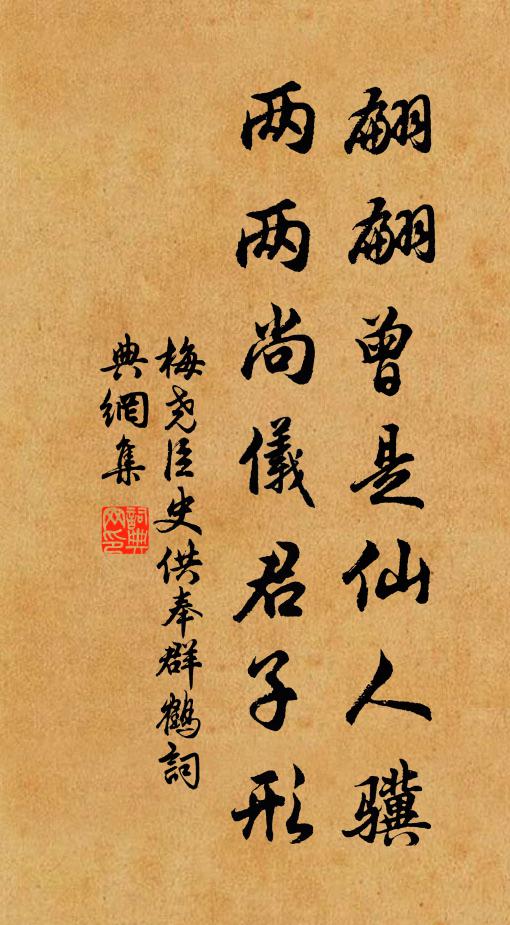 翩翩曾是仙人骥
两两尚儀君子形
梅尭臣史供奉群鶴詞
典網集
詞典網印